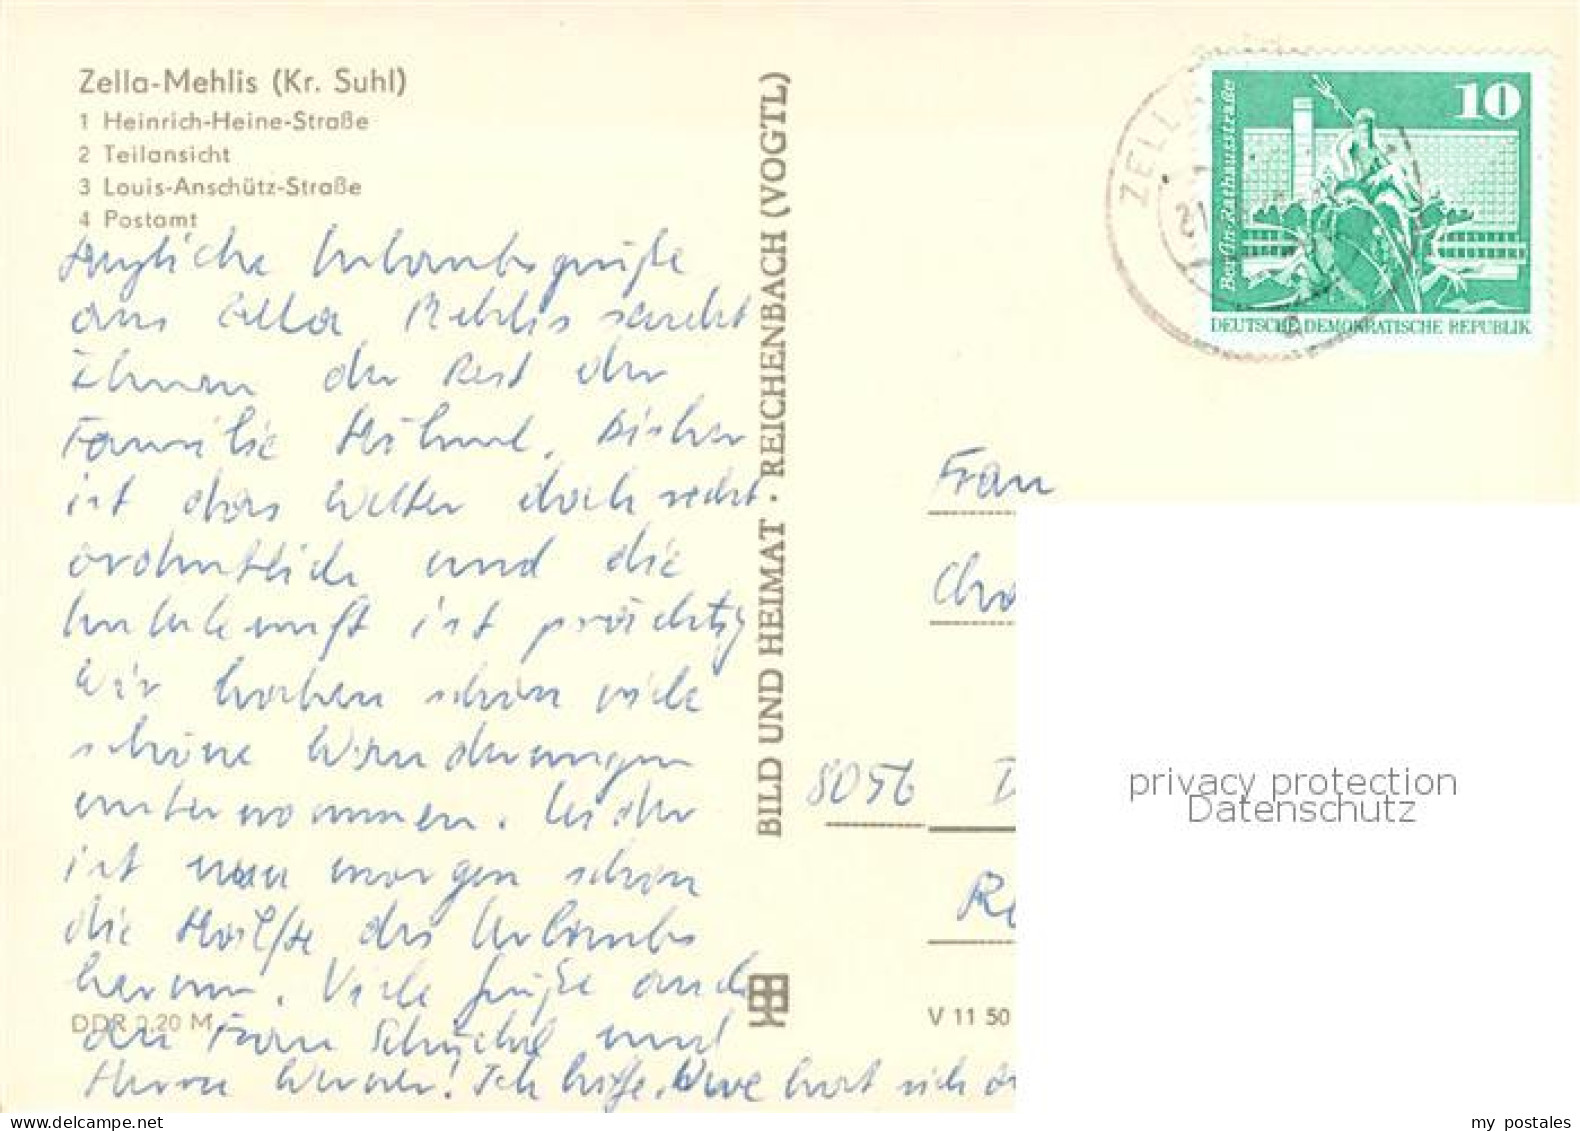 Zella-Mehlis (Kr. Suhl)
1 Heinrich-Heine-Straße
2 Teilansicht
3 Louis-Anschütz-Straße
4 Postamt
Herzliche Urlaubsgrüße
aus Zella Mehlis sendet
Ihnen der Rest der
Familie Hühnel. Bisher
ist das Wetter doch recht
ordentlich und die
Unterkunft ist prächtig
Wir haben schon viele
schöne Wanderungen
unternommen. Leider
ist nun morgen schon
die Hälfte des Urlaubs
herum. Viele Grüße auch
DDR 0,20 M
an Frau und
Herrn Werner! Ich hoffe, Uwe hat sich
BILD UND HEIMAT · REICHENBACH (VOGTL)
ZELLA
21
10
Berlin, Rathausstraße
DEUTSCHE DEMOKRATISCHE REPUBLIK
Frau
8056 D
V 11 50
privacy protection
Datenschutz
www.delcampe.net
my postales